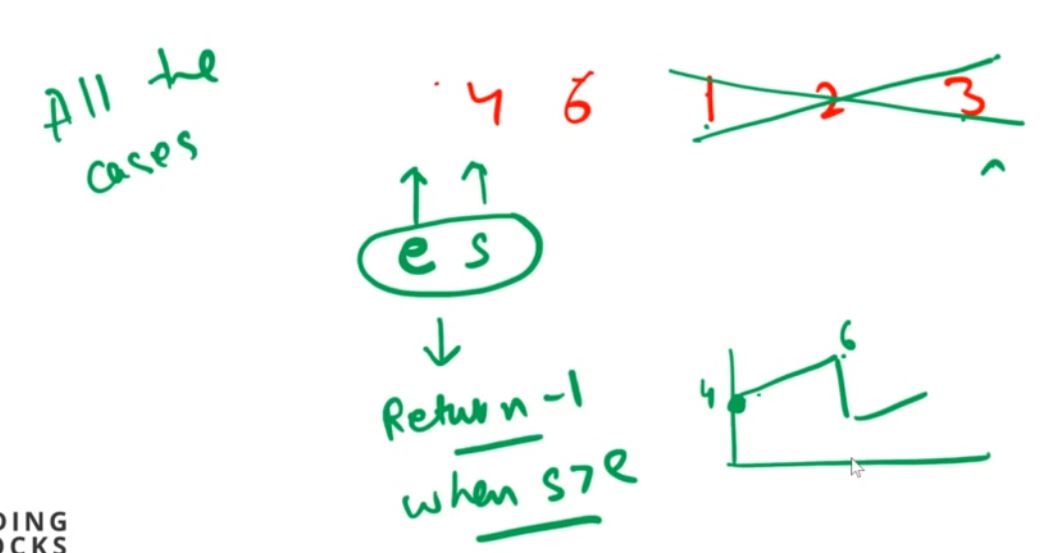 All the
cases
4 6 1 2 3
e s
Return -1
when s>e
6
4
DING
OCKS